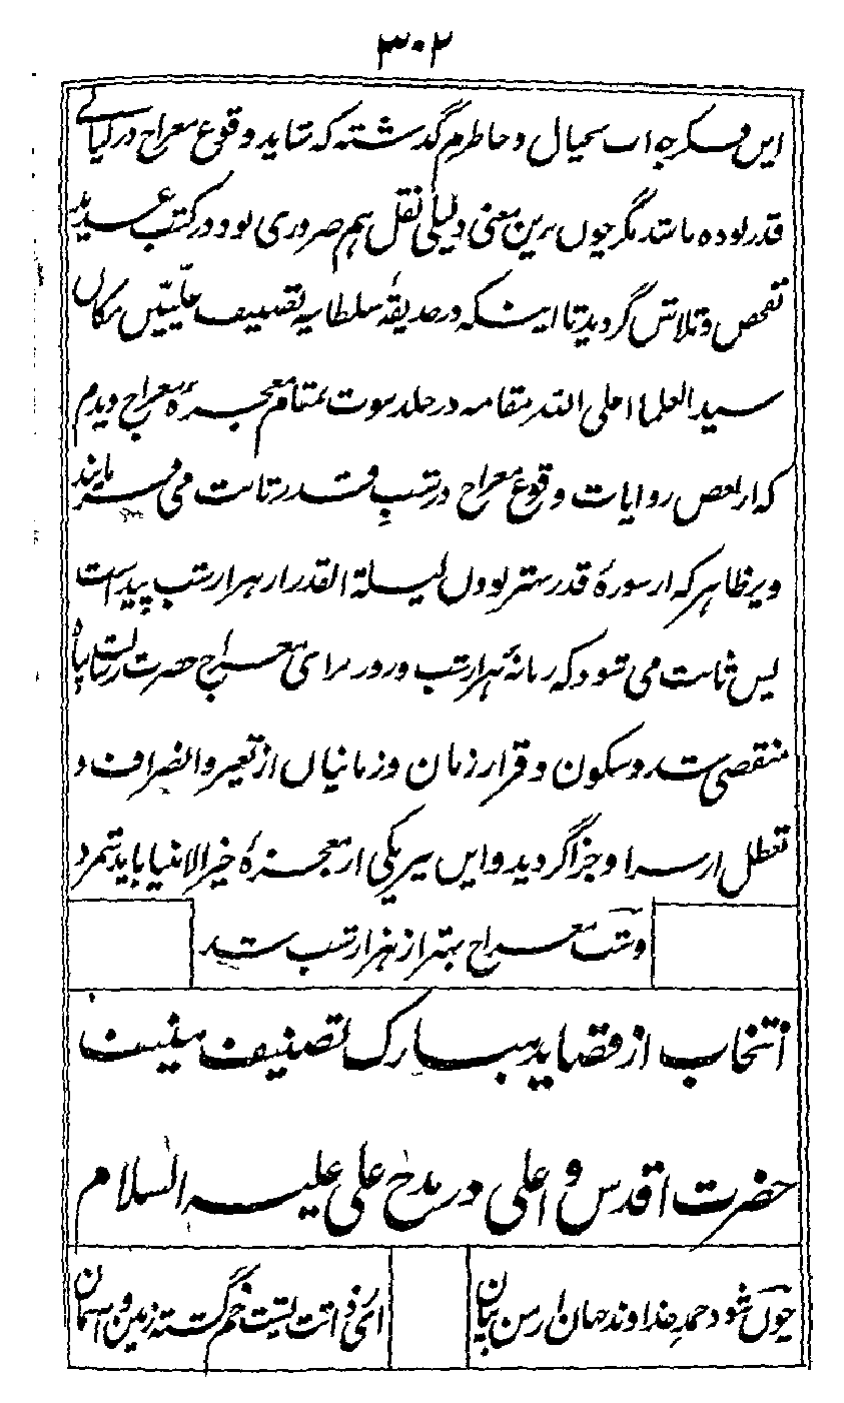 ۳۰۲
این فکر چو اب بخیال و خاطرم گذشته که شاید وقوع معراج در لیالے
قدر بوده باشد مگر چوں برین معنی دلیلی نقل هم ضروری بود در کتب عدیده
تفحص و تلاش گردید تا اینکه در حدیقۂ سلطانیه تصنیف علیّیں مکاں
سید العلما اعلی الله مقامه در جلد نبوت بمقام معجزۂ معراج دیدم
که از بعض روایات وقوع معراج در شبِ قدر ثابت می فرمایند
و بر ظاهر که از سورۂ قدر بهتر بودن لیلة القدر از هزار شب پیداست
پس ثابت می شود که زمانۂ هزار شب و روز برای معراج حضرت رسالت پناه
منقضی شد و سکون و قرار زمان و زمانیاں از تغیر و انصراف و
تعطل از سرا و جزا گردید و این نیز یکی از معجزۂ خیر الانبیا باید شمرد
و شب معراج بهتر از هزار شب شد
انتخاب از قصاید مبارک تصنیف منیف
حضرت اقدس و اعلی در مدح علی علیه السلام
چوں شود حمدِ خداوند جهان از من بیان
ای ز ذاتت پشت خم گشته زمین و آسمان